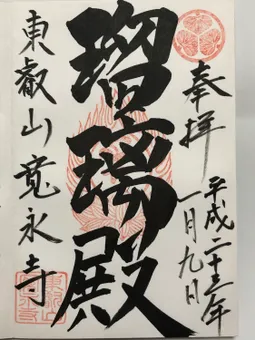 奉拝
平成二十三年
一月九日
瑠璃殿
東叡山寛永寺